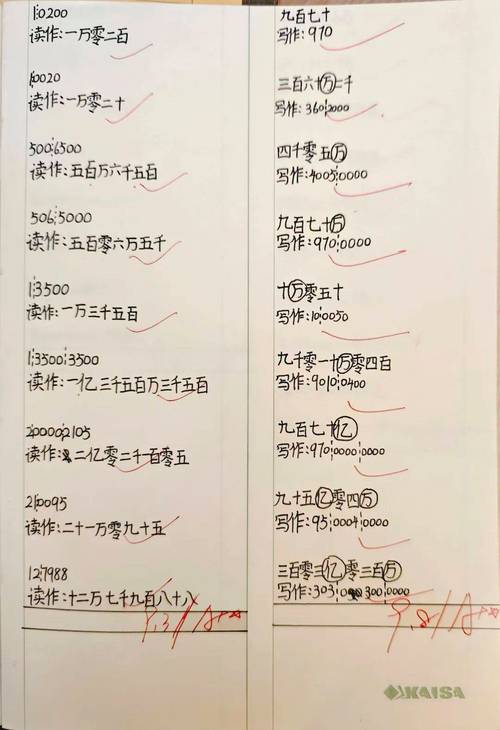 1¦0200
读作:一万零二百
1¦0020
读作:一万零二十
500¦6500
读作:五百万六千五百
506¦5000
读作:五百零六万五千
1¦3500
读作:一万三千五百
1¦3500¦3500
读作:一亿三千五百万三千五百
2¦0000¦2105
读作:二亿零二千一百零五
21¦0095
读作:二十一万零九十五
12¦7988
读作:十二万七千九百八十八
九百七十
写作:970
三百六十万二千
写作:360¦2000
四千零五万
写作:4005¦0000
九百七十万
写作:970¦0000
十万零五十
写作:10¦0050
九千零一十万零四百
写作:9010¦0400
九百七十亿
写作:970¦0000¦0000
九十五亿零四万
写作:95¦0004¦0000
三百零三亿零三百万
写作:303¦0300¦0000
KAISA